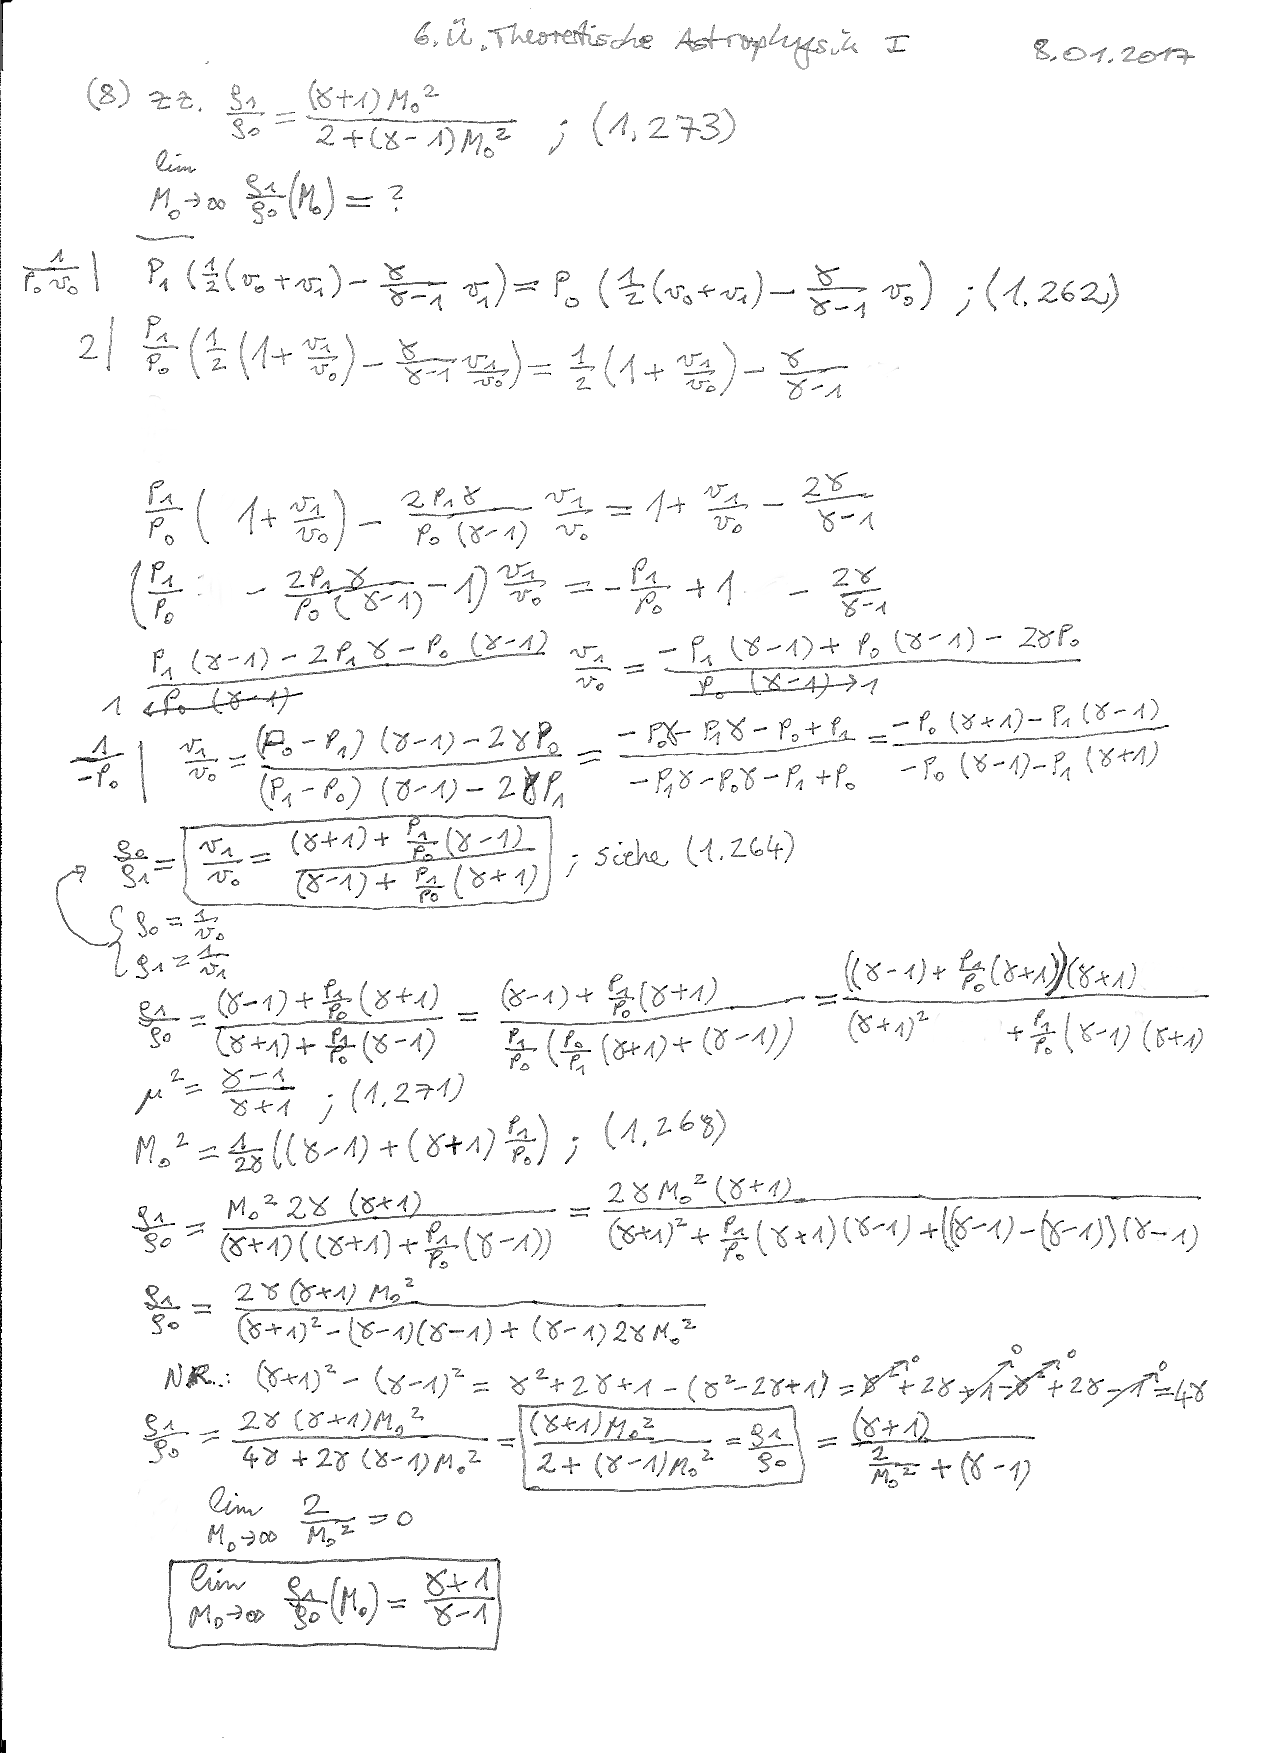 6. Ü. Theoretische Astrophysik I 8.01.2017
(8) z z. ρ₁/ρ₀ = (γ+1) M₀² / (2+(γ-1)M₀²) ; (1,273)
lim M₀→∞ ρ₁/ρ₀ (M₀) = ?
1/(P₀v₀) | P₁ (1/2 (v₀+v₁) - γ/(γ-1) v₁) = P₀ (1/2 (v₀+v₁) - γ/(γ-1) v₀) ; (1.262)
2 | P₁/P₀ (1/2 (1+ v₁/v₀) - γ/(γ-1) v₁/v₀) = 1/2 (1+ v₁/v₀) - γ/(γ-1)
P₁/P₀ ( 1+ v₁/v₀) - 2P₁γ/(P₀ (γ-1)) v₁/v₀ = 1+ v₁/v₀ - 2γ/(γ-1)
(P₁/P₀ - 2P₁γ/(P₀(γ-1)) - 1) v₁/v₀ = - P₁/P₀ + 1 - 2γ/(γ-1)
(P₁ (γ-1) - 2P₁γ - P₀ (γ-1))/(P₀ (γ-1)) v₁/v₀ = (-P₁ (γ-1) + P₀ (γ-1) - 2γP₀)/(P₀ (γ-1))
1/(-P₀) | v₁/v₀ = ((P₀-P₁) (γ-1) - 2γP₀)/((P₁-P₀) (γ-1) - 2γP₁) = (-P₀γ - P₁γ - P₀ + P₁)/(-P₁γ - P₀γ - P₁ + P₀) = (-P₀ (γ+1) - P₁ (γ-1))/(-P₀ (γ-1) - P₁ (γ+1))
ρ₀/ρ₁ = v₁/v₀ = ((γ+1) + P₁/P₀ (γ-1))/((γ-1) + P₁/P₀ (γ+1)) ; siehe (1.264)
ρ₀ = 1/v₀
ρ₁ = 1/v₁
ρ₁/ρ₀ = ((γ-1) + P₁/P₀ (γ+1))/((γ+1) + P₁/P₀ (γ-1)) = ((γ-1) + P₁/P₀ (γ+1))/(P₁/P₀ (P₀/P₁ (γ+1) + (γ-1))) = (((γ-1) + P₁/P₀ (γ+1))(γ+1))/((γ+1)² + P₁/P₀ (γ-1) (γ+1))
μ² = (γ-1)/(γ+1) ; (1,271)
M₀² = 1/2γ ((γ-1) + (γ+1) P₁/P₀) ; (1,268)
ρ₁/ρ₀ = (M₀² 2γ (γ+1))/((γ+1) ((γ+1) + P₁/P₀ (γ-1))) = (2γ M₀² (γ+1))/((γ+1)² + P₁/P₀ (γ+1) (γ-1) + ((γ-1) - (γ-1)) (γ-1))
ρ₁/ρ₀ = (2γ (γ+1) M₀²)/((γ+1)² - (γ-1)(γ-1) + (γ-1) 2γM₀²)
NR.: (γ+1)² - (γ-1)² = γ² + 2γ + 1 - (γ² - 2γ + 1) = γ² + 2γ + 1 - γ² + 2γ - 1 = 4γ
ρ₁/ρ₀ = (2γ (γ+1) M₀²)/(4γ + 2γ (γ-1) M₀²) = ((γ+1) M₀²)/(2 + (γ-1) M₀²) = ρ₁/ρ₀ = (γ+1)/(2/M₀² + (γ-1))
lim M₀→∞ 2/M₀² = 0
lim M₀→∞ ρ₁/ρ₀ (M₀) = (γ+1)/(γ-1)